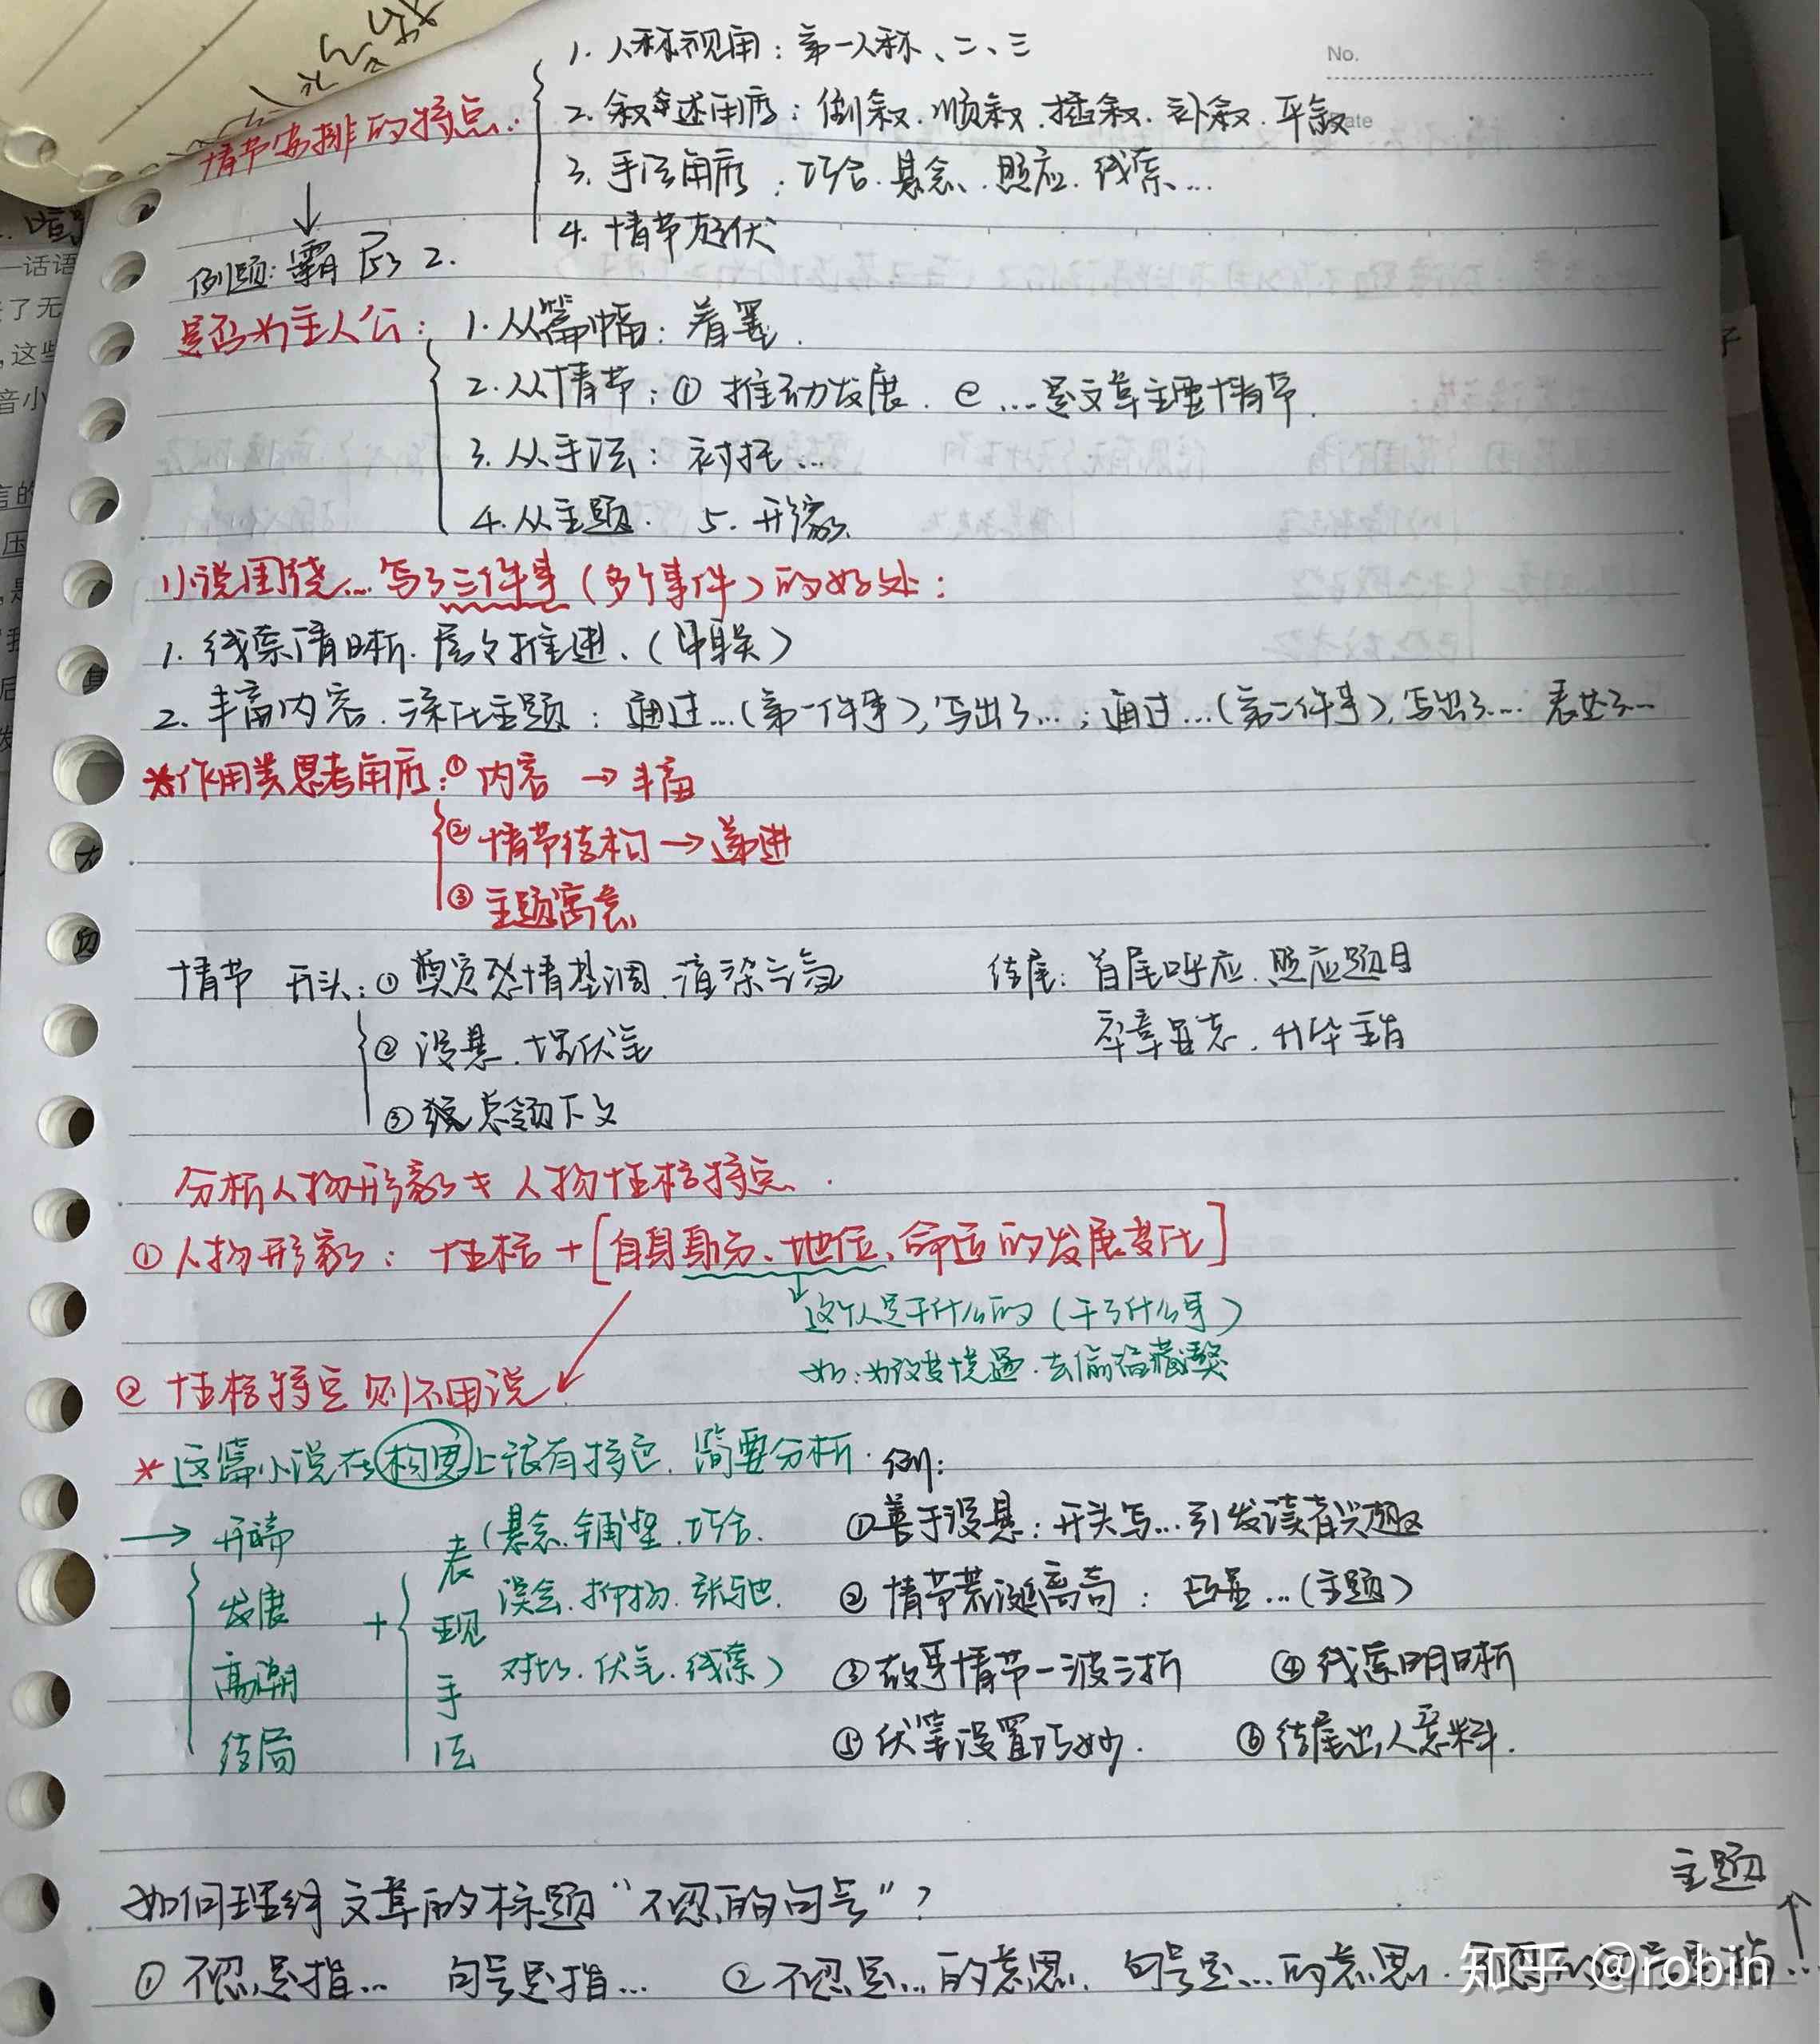 1. 人称视角：第一人称、二、三
No.
情节安排的特点：
2. 叙述角度：倒叙.顺叙.插叙.补叙.平叙
3. 手法角度：巧合.悬念.照应.线索...
4. 情节起伏
例题：霸 2.
是否为主人公：
1. 从篇幅：着墨.
2. 从情节：① 推动发展. ② ...是文章主要情节.
3. 从手法：衬托...
4. 从主题. 5. 形象
小说围绕...写了三件事（多个事件）的好处：
1. 线索清晰.层层推进.（串联）
2. 丰富内容.深化主题：通过...（第一件事），写出了...；通过...（第二件事），写出了... 表达了...
*作用类思考角度：① 内容 → 丰富
② 情节结构 → 递进
③ 主题寓意
情节 开头：① 奠定感情基调.渲染氛
结尾：首尾呼应.照应题目
② 设悬.埋伏笔
卒章显志.升华主旨
③ 总领下文
分析人物形象与人物性格特点.
① 人物形象：性格+[自身身份、地位、命运的发展变化]
↓这个人是干什么的（干了什么事）
如：为改变境遇.去偷福藏獒
② 性格特点则不用说
*这篇小说在构思上很有特色.简要分析.例：
→ 开端
发展
高潮
结局
+
表现手法
（悬念.铺垫.巧合.
误会.抑扬.张弛.
对比.伏笔.线索）
① 善于设悬：开头写...引发读者兴趣
② 情节荒诞离奇：凸显...（主题）
③ 故事情节一波三折 ④ 线索明晰
⑤ 伏笔设置巧妙. ⑥ 结尾出人意料.
主题
如何理解文章的标题“不忍的句号”？
① 不忍是指... 句号是指... ② 不忍是...的意思.句号是...的意思.
知乎 @robin